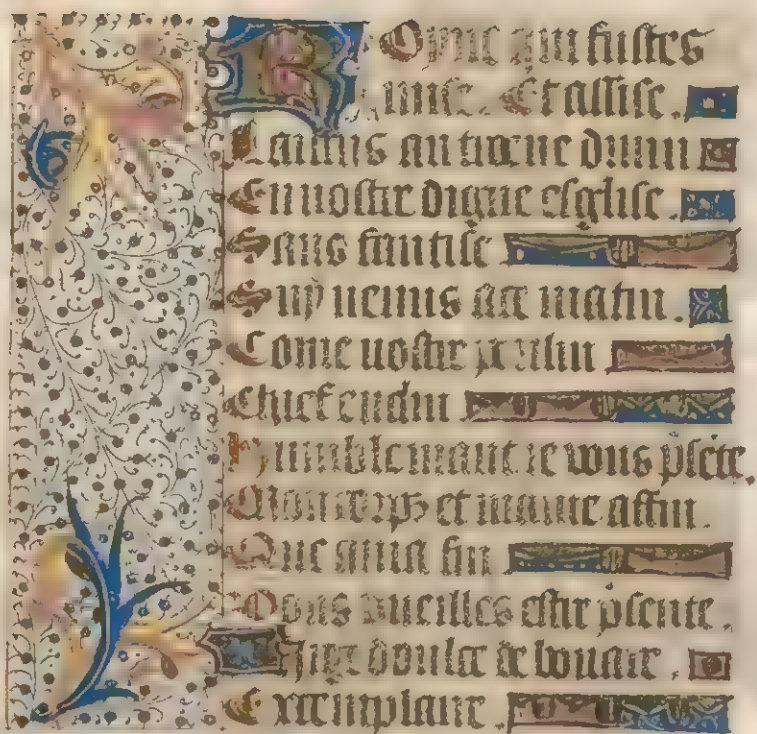 Royne qui fustes
mise. Et assise.
Lamus au trosne diuin
En uostre digne esglise.
Sans faintise
Suy uenus ace matin.
Come uostre pelerin
Chief enclin
Humblemant ie vous pñte.
Mon corps et mame affin.
Que a ma fin
Vous vueilles estre pñente.
douce de bonaire.
Exemplaire.